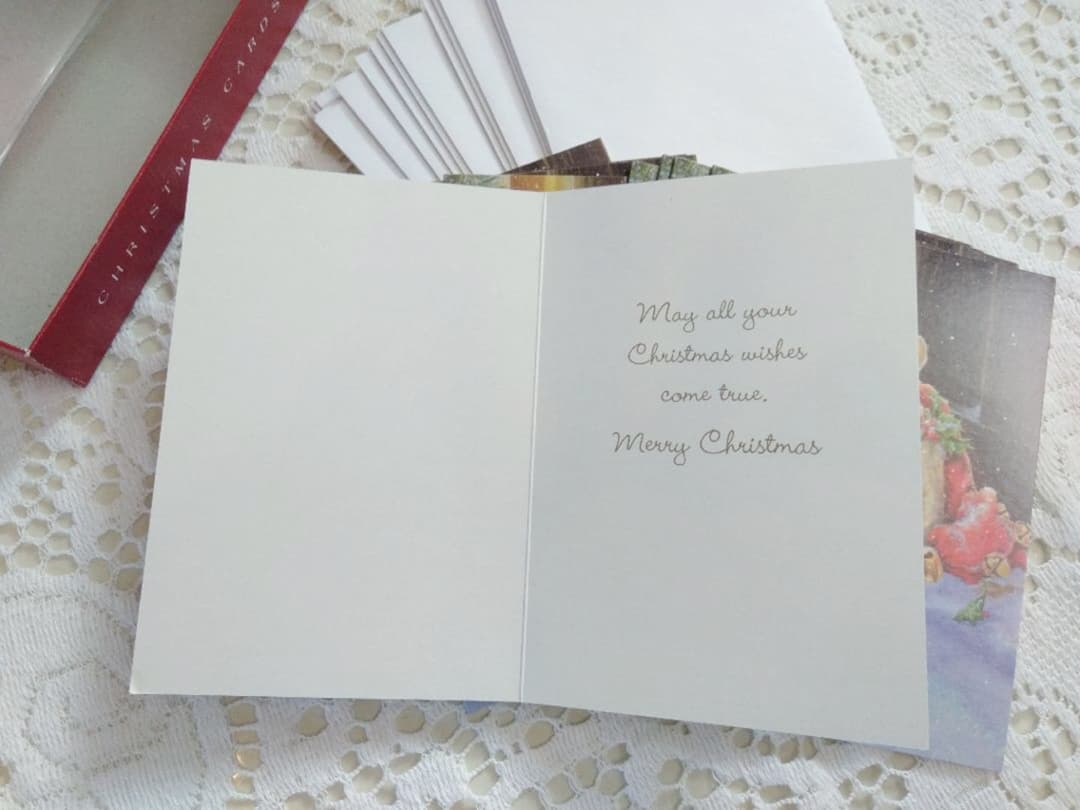 CHRISTMAS CARDS
May all your
Christmas wishes
come true.
Merry Christmas